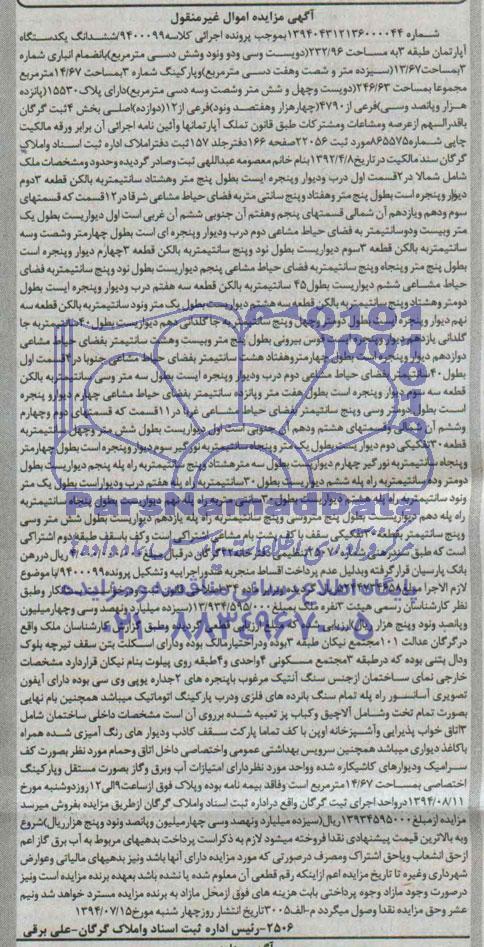 آگهی مزایده اموال غیرمنقول
شماره ۱۳۹۴۰۴۳۱۲۱۳۶۰۰۰۰۴۴ بموجب پرونده اجرائی کلاسه ۹۴۰۰۰۹۹ ششدانگ یکدستگاه
آپارتمان طبقه ۳ به مساحت ۲۳۲/۹۶ (دویست وسی ودو ونود وشش دسی مترمربع) بانضمام انباری شماره
۳ بمساحت ۱۳/۶۷ (سیزده متر و شصت وهفت دسی مترمربع) وپارکینگ شماره ۳ بمساحت ۱۴/۶۷ مترمربع
مجموعا بمساحت ۲۴۶/۶۳ (دویست وچهل و شش متر وشصت وسه دسی متر) دارای پلاک ۱۵۵۳۰ (پانزده
هزار وپانصد وسی) فرعی از ۴۷۹۰ (چهارهزار وهفتصد ونود) فرعی از ۱۲ (دوازده) اصلی بخش ۴ ثبت گرگان
باقدرالسهم از عرصه ومشاعات ومشترکات طبق قانون تملک آپارتمانها وآئین نامه اجرائی آن برابر ورقه مالکیت
چاپی شماره ۸۶۵۵۷۵ مورد ثبت ۲۲۰۵۶ صفحه ۱۶۶ دفتر جلد ۱۵۷ ثبت دفتر املاک اداره ثبت اسناد واملاک
گرگان سند مالکیت در تاریخ ۱۳۹۲/۴/۸ بنام خانم معصومه عبداللهی ثبت وصادر گردیده وحدود ومشخصات ملک
شمل شمالا در ۲ قسمت اول درب ودیوار وپنجره ایست بطول پنج متر وهشتاد سانتیمتر به بالکن قطعه ۳ دوم
دیوار وپنجره است بطول پنج متر وهفتاد وپنج سانتی متر به فضای حیاط مشاعی شرقا در ۱۲ قسمت که قسمتهای
سوم ودهم ویازدهم آن شمالی قسمتهای پنجم وهفتم آن جنوبی ششم آن غربی است اول دیواریست بطول یک
متر وبیست ودو سانتیمتر به فضای حیاط مشاعی دوم درب ودیوار وپنجره ای است بطول چهار متر وشصت وسه
سانتیمتر به بالکن قطعه ۳ سوم دیواریست بطول نود وپنج سانتیمتر به بالکن قطعه ۳ چهارم دیوار وپنجره است
بطول پنج متر وپنجاه وپنج سانتیمتر به فضای حیاط مشاعی پنجم دیواریست بطول نود وپنج سانتیمتر به فضای
حیاط مشاعی ششم دیواریست بطول ۴۵ سانتیمتر به بالکن قطعه سه هفتم درب ودیوار وپنجره ایست بطول
دومتر وهشتاد وپنج سانتیمتر به بالکن قطعه سه هشتم دیواریست بطول یک متر ونود سانتیمتر به بالکن قطعه سه
نهم دیوار وپنجره است بطول دومتر وچهل وپنج سانتیمتر به جا گلدانی دهم دیواریست بطول ۴۰ سانتیمتر به جا
گلدانی یازدهم دیوار وپنجره ایست قوس بیرونی بطول پنج متر وبیست وهشت سانتیمتر بفضای حیاط مشاعی
دوازدهم دیوار وپنجره است بطول چهار متر وهفتاد هشت سانتیمتر بفضای حیاط مشاعی جنوبا در ۴ قسمت اول
بطول ۴۰ سانتیمتر بفضای حیاط مشاعی دوم درب ودیوار وپنجره ایست بطول سه متر وسی سانتیمتر به بالکن
قطعه سه سوم دیوار وپنجره است بطول هفت متر وپانزده سانتیمتر بفضای حیاط مشاعی چهارم دیوار وپنجره
است بطول دومتر وسی وپنج سانتیمتر بفضای حیاط مشاعی غربا در ۱۱ قسمت که قسمتهای دوم وچهارم
وششم آن شمالی وقسمتهای هشتم ودهم آن جنوبی است اول دیواریست بطول شش متر وچهل سانتیمتر به
قطعه ۳۰ تفکیکی دوم دیواریست بطول یک متر وپنجاه سانتیمتر به نورگیر سوم دیوار وپنجره است بطول چهار متر
وپنجاه سانتیمتر به نورگیر چهارم دیواریست بطول سه متر هشتاد وپنج سانتیمتر به راه پله پنجم دیواریست بطول
دومتر ودو سانتیمتر به راه پله ششم دیواریست بطول ۳۰ سانتیمتر به راه پله هفتم درب ودیوار است بطول یک متر
ونود سانتیمتر به راه پله هشتم دیواریست بطول ۳۰ سانتی متر به راه پله نهم دیواریست بطول پنجاه سانتیمتر به
راه پله دهم دیواریست بطول پنج متر وسی وپنج سانتیمتر به راه پله یازدهم دیواریست بطول شش متر وسی
وپنج سانتیمتر بقطعه ۳۰ تفکیکی سقف با کف پشت بام مشاعی اشتراکی است وکف باسقف طبقه دوم اشتراکی
بانک پارسیان قرار گرفته وبدلیل عدم پرداخت اقساط منجر به صدور اجرائیه وتشکیل پرونده ۹۴۰۰۰۹۹ با موضوع
نظر کارشناس رسمی هیئت ۳ نفره ملک بمبلغ ۱۳/۹۳۴/۵۹۵/۰۰۰ (سیزده میلیارد ونهصد وسی وچهار میلیون
وپانصد ونود وپنج هزار ریال) ارزیابی شده که مبلغ ارزیابی قطعی گردیده وطبق گزارش کارشناسان ملک واقع
در گرگان عدالت ۱۰۱ مجتمع نیکان طبقه ۳ بوده ودر اختیار مالک بوده ودارای اسکلت بتن سقف تیرچه بلوک
ودال بتنی بوده که در طبقه ۳ مجتمع مسکونی ۴ واحدی و ۴ طبقه روی پیلوت بنام نیکان قرار دارد مشخصات
خارجی نمای ساختمان از جنس سنگ آنتیک مرغوب باپنجره های ۲ جداره یوپی وی سی بوده دارای آیفون
تصویری آسانسور راه پله تمام سنگ بانرده های فلزی ودرب پارکینگ اتوماتیک میباشد همچنین بام نهایی
بصورت تمام تخت وشامل آلاچیق وکباب پز تعبیه شده برروی آن است مشخصات داخلی ساختمان شامل
۳ اتاق خواب پذیرایی وآشپزخانه اوپن با کف تماما پارکت سقف کاذب ودیوار های رنگ آمیزی شده همراه
باکاغذ دیواری میباشد همچنین سرویس بهداشتی عمومی واختصاصی داخل اتاق وحمام مورد نظر بصورت کف
سرامیک ودیوارهای کاشیکاری شده وواحد مورد نظر دارای امتیازات آب وبرق وگاز بصورت مستقل وپارکینگ
اختصاصی بمساحت ۱۴/۶۷ مترمربع است وفاقد بیمه نامه بوده وپلاک فوق از ساعت ۹ الی ۱۲ روز دوشنبه مورخ
۱۳۹۴/۰۸/۱۱ در واحد اجرای ثبت گرگان واقع در اداره ثبت اسناد واملاک گرگان از طریق مزایده بفروش میرسد
مزایده از مبلغ ۱۳۹۳۴۵۹۵۰۰۰ ریال (سیزده میلیارد ونهصد وسی چهار میلیون وپانصد ونود وپنج هزار ریال) شروع
وبه بالاترین قیمت پیشنهادی نقدا فروخته میشود لازم به ذکر است پرداخت بدهیهای مربوط به آب برق گاز اعم
از حق انشعاب وباحق اشتراک ومصرف در صورتی که مورد مزایده دارای آنها باشد ونیز بدهیهای مالیاتی وعوارض
شهرداری وغیره تا تاریخ مزایده اعم از اینکه رقم قطعی آن معلوم شده یا نشده باشد بعهده برنده مزایده است ونیز
در صورت وجود مازاد وجوه پرداختی بابت هزینه های فوق از محل مازاد به برنده مزایده مسترد خواهد شد ونیم
عشر وحق مزایده نقدا وصول میگردد م-الف ۳۰۰۵ تاریخ انتشار روز چهار شنبه مورخ ۱۳۹۴/۰۷/۱۵
۲۵۰۶-رئیس اداره ثبت اسناد واملاک گرگان-علی برقی
ParsNamadData
پایگاه اطلاع رسانی مناقصه و مزایده
۰۲۱-۸۸۳۴۹۶۷۰-۵